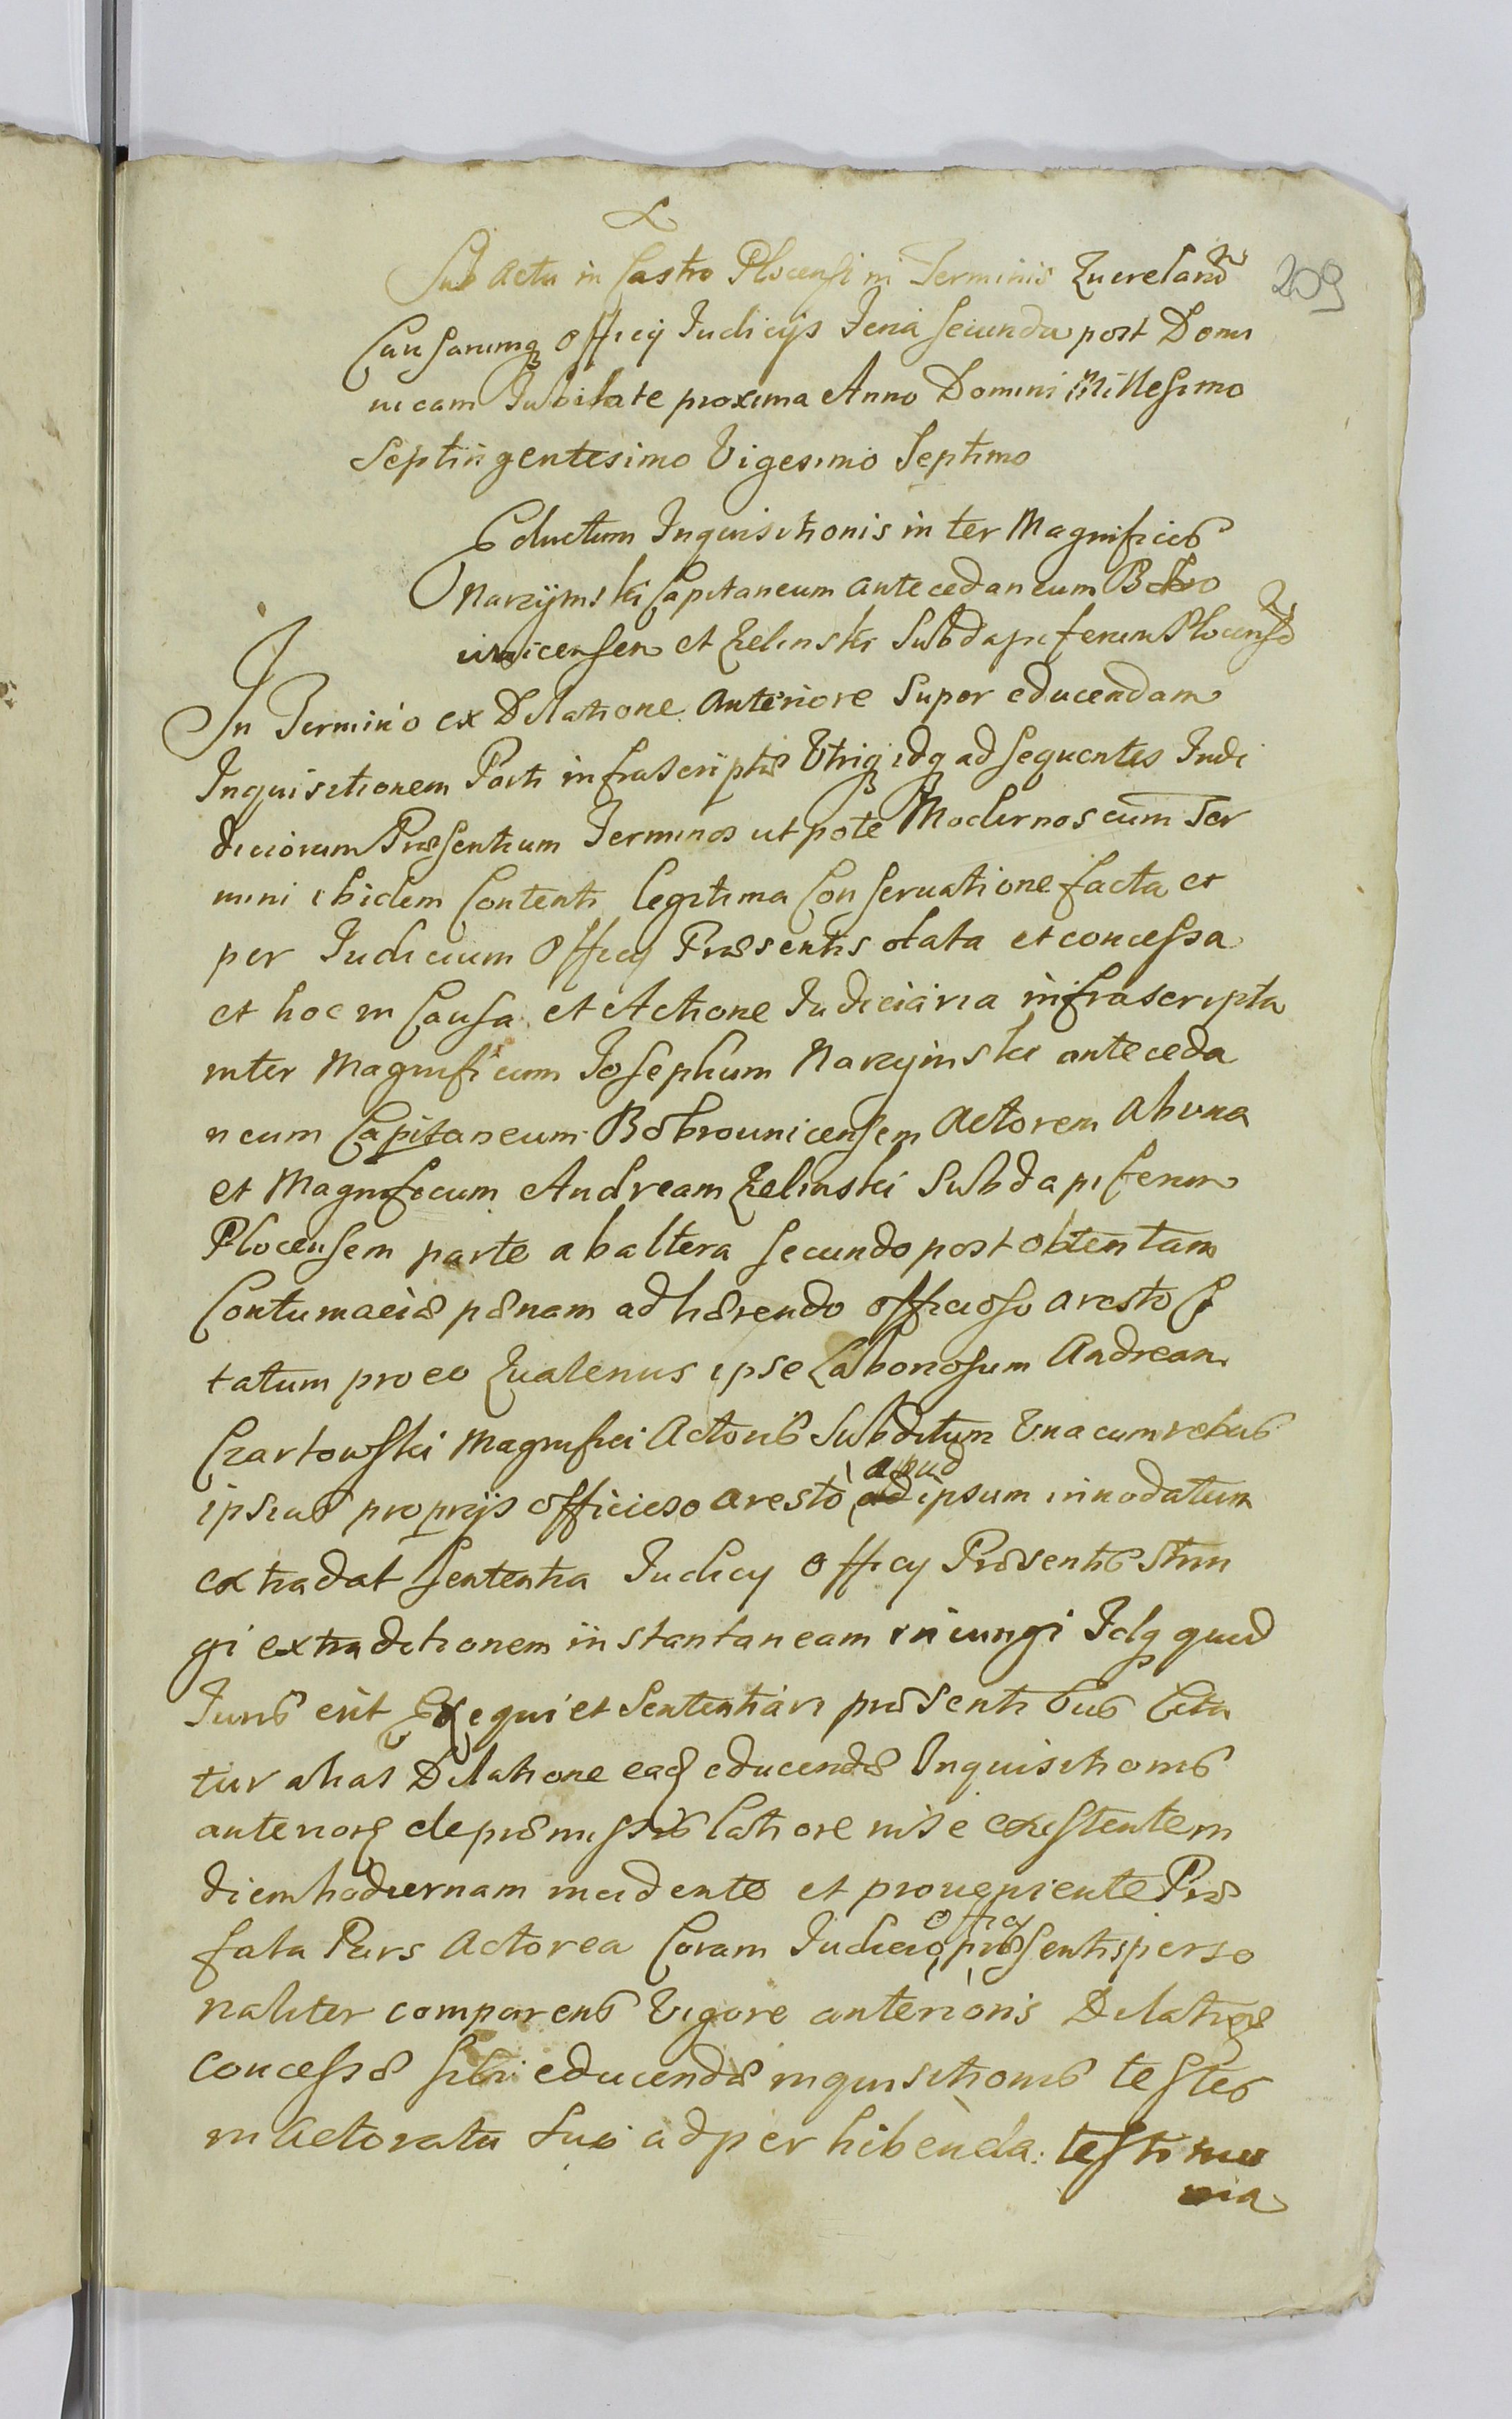 209
Sub Actu in Castro Plocensi in Terminis Querelarũ
Causarumq Officij Judicijs Feria Secunda post Domi
nicam Jubilate proxima Anno Domini Millesimo
Septingentesimo Vigesimo Septimo
Eductum Inquisitionis inter Magnificos
Narzymski Capitaneum antecedaneum Bobro
wnicensem et Zelinski Subdapiferum Plocensẽ
In Termino ex Dilatione Anteriore Super educendam
Inquisitionem Parti infrascriptæ Utriq idq ad sequentes Judi
diciorum Præsentium Terminos utpote Modernos cum Ter
mini ibidem Contenti legitima Conservatione facta et
per Judicium Officij Præsentis data et concessa
et hoc in Causa et Actione Judiciaria infrascripta
inter Magnificum Josephum Narzymski anteceda
neum Capitaneum Bobrounicensem Actorem Ab una
et Magnificum Andream Zelinski Subdapiferum
Plocensem parte ab altera secundo post obtentam
Contumaciæ pænam adhærendo officioso aresto Ci
tatum pro eo Quatenus ipse Laboriosum Andream
Czartowski Magnifici Actoris Subditum Una cum rebus
ipsius proprijs officioso aresto apud ipsum innodatum
extradat Sententia Judicij Officij Præsentis Strin
gi extraditionem instantaneam iniungi Idq quod
Juris erit Exequi et Sententiari præsentibus Cita
tur alias Dilatione eaq educendæ Inquisitionis
anteriorq de præmissis Latiore in se existentem
diem hodiernam incidente et proveniente Præ
fata Pars Actorea Coram Judicio Officij præsentis perso
naliter comparens Vigore anterioris Dilationis
concessæ sibi educendæ inquisitionis testes
in Actoratu Suo ad perhibenda testimo
nia